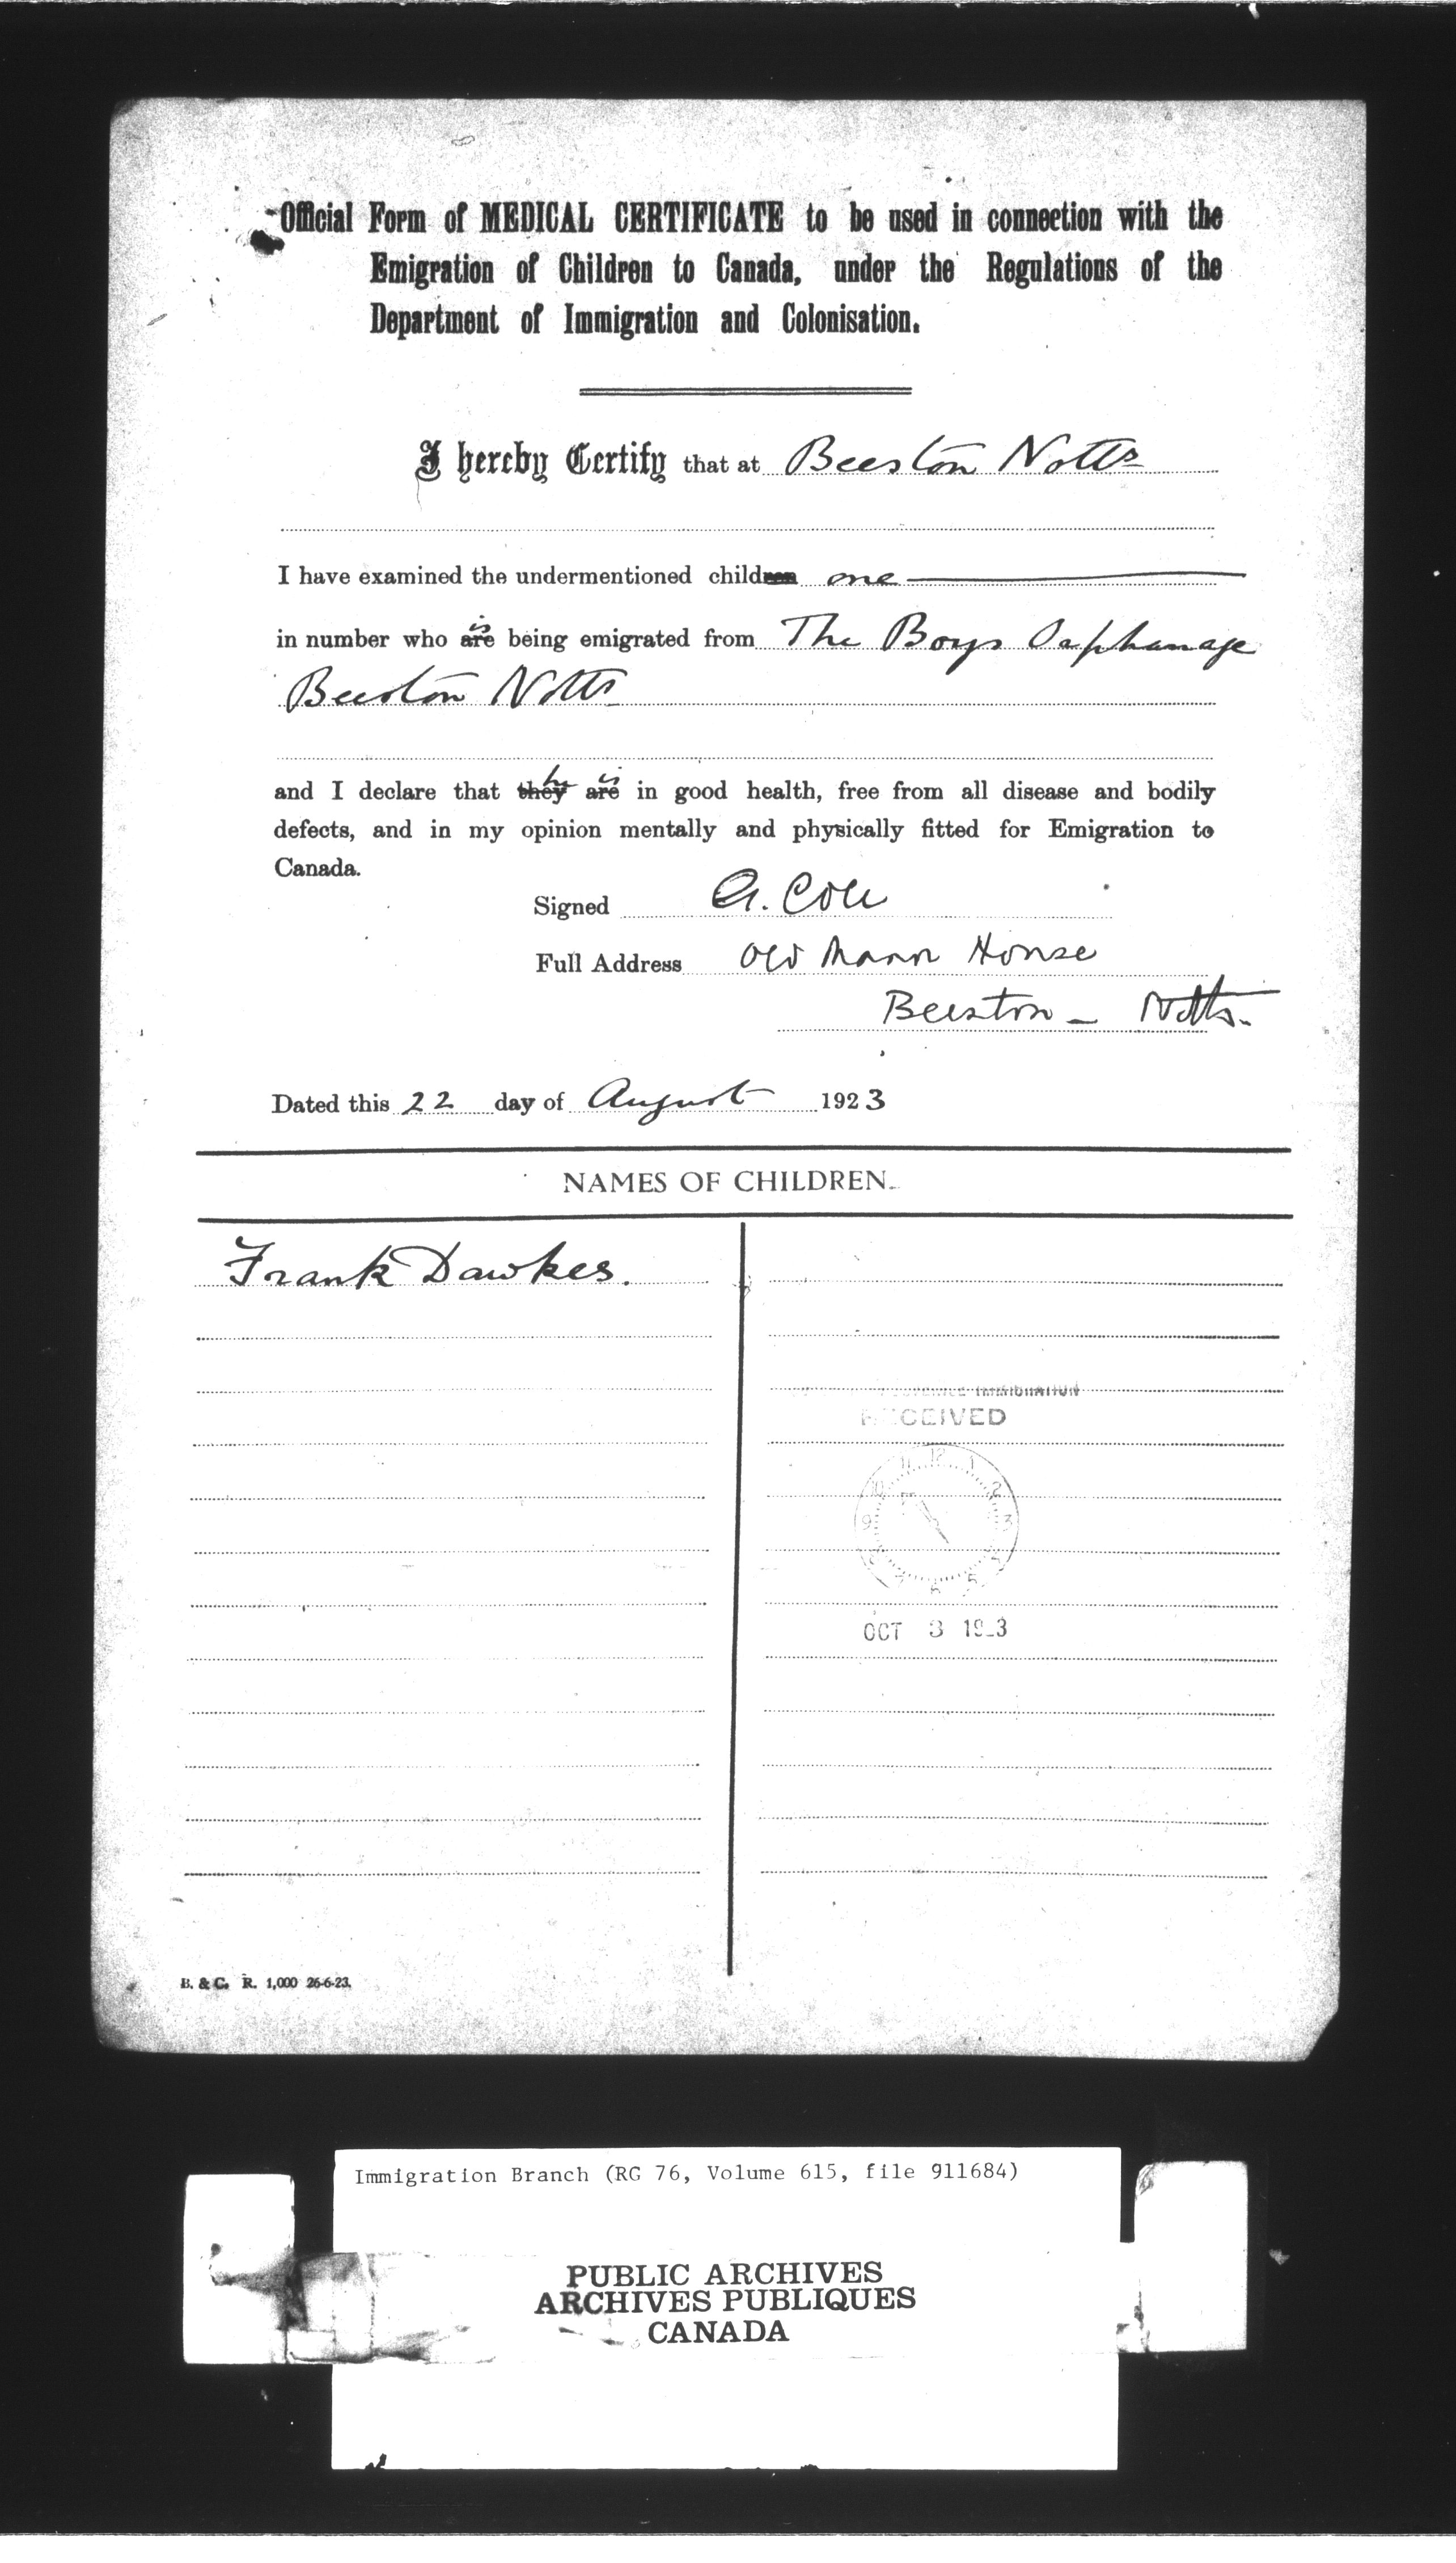 Official Form of MEDICAL CERTIFICATE to be used in connection with the
Emigration of Children to Canada, under the Regulations of the
Department of Immigration and Colonisation.
I hereby Certify that at Beeston Notts
I have examined the undermentioned children one
in number who are is being emigrated from The Boys Orphanage
Beeston Notts
and I declare that they he are is in good health, free from all disease and bodily
defects, and in my opinion mentally and physically fitted for Emigration to
Canada.
Signed A. Cole
Full Address Old Manor House
Beeston - Notts.
Dated this 22 day of August 1923
NAMES OF CHILDREN.
Frank Dawkes.
IMMIGRATION
RECEIVED
12 1 2 3 5 6 7 9 10 11
OCT 3 1923
B. & C. R. 1,000 26-6-23.
Immigration Branch (RG 76, Volume 615, file 911684)
PUBLIC ARCHIVES
ARCHIVES PUBLIQUES
CANADA